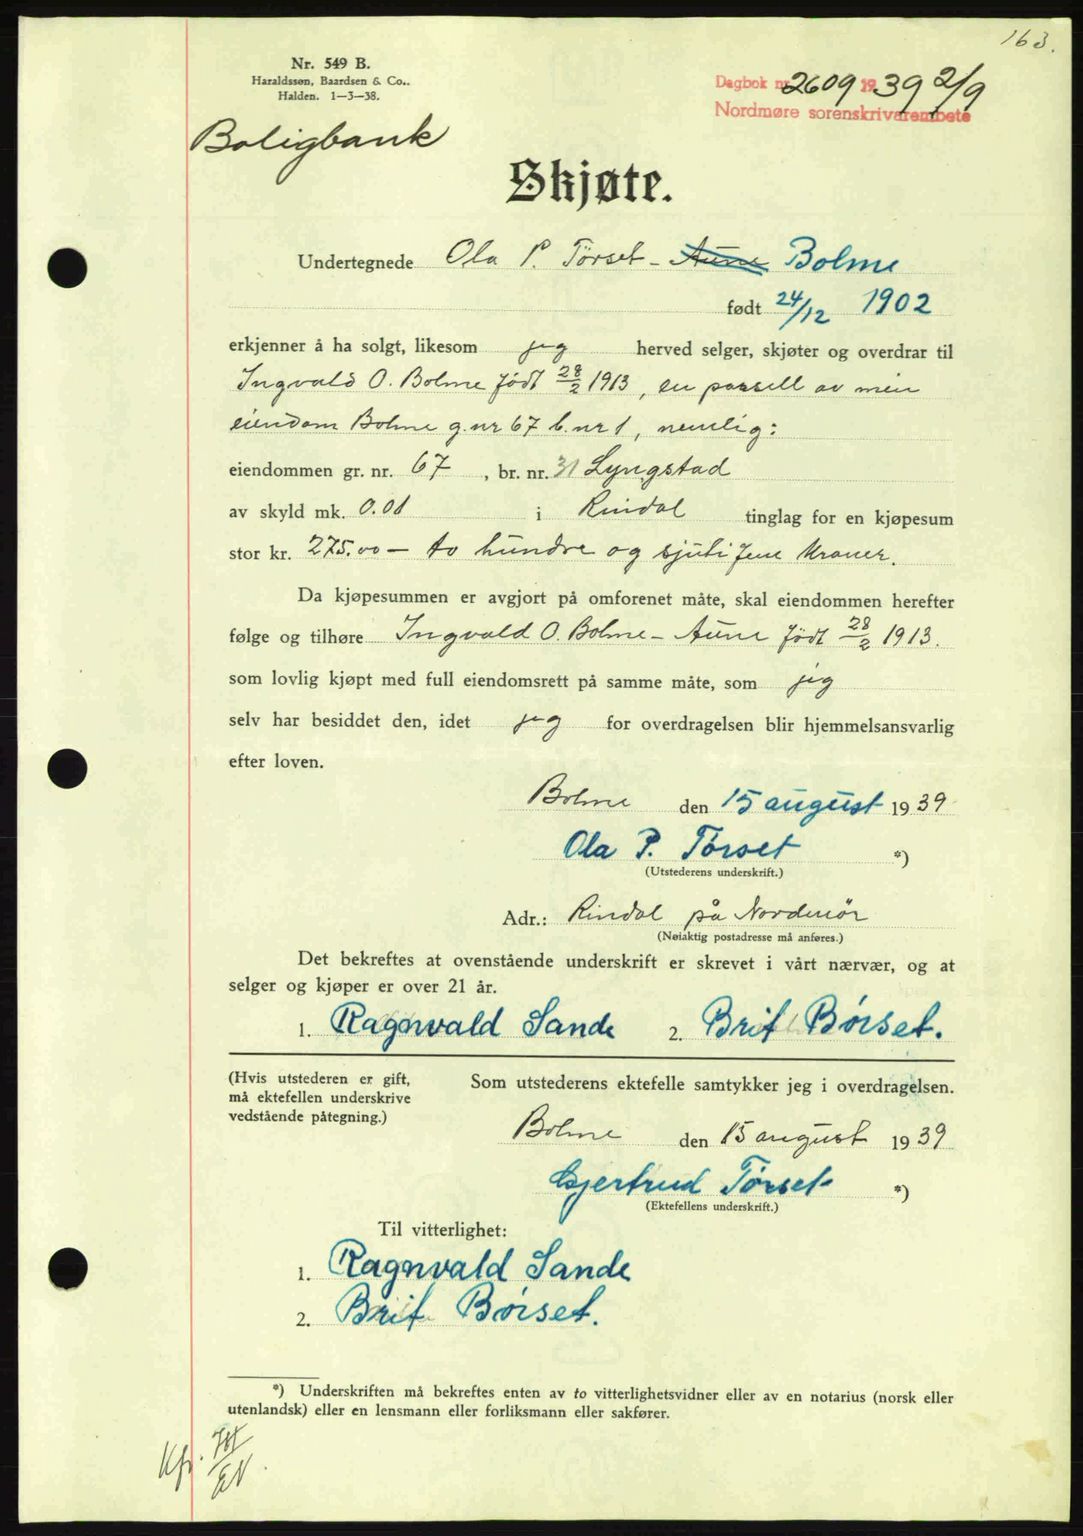 163.
Nr. 549 B.
Haraldssøn, Baardsen & Co..
Halden. 1—3—38.
Dagbok nr 2609 1939 2/9
Nordmøre sorenskriverembete
Boligbank
Skjøte.
Undertegnede Ola P. Törset - Aune Bolme
født 24/12 1902
erkjenner å ha solgt, likesom jeg herved selger, skjøter og overdrar til
Ingvald O. Bolme født 28/2 1913, en parsell av min
eiendom Bolme g.nr 67 b.nr 1, nemlig:
eiendommen gr. nr. 67, br. nr. 31 Lyngstad
av skyld mk. 0.01 i Rindal tinglag for en kjøpesum
stor kr. 275.00 — to hundre og sjuti fem kroner.
Da kjøpesummen er avgjort på omforenet måte, skal eiendommen herefter
følge og tilhøre Ingvald O. Bolme - Aune født 28/2 1913.
som lovlig kjøpt med full eiendomsrett på samme måte, som jeg
selv har besiddet den, idet jeg for overdragelsen blir hjemmelsansvarlig
efter loven.
Bolme den 15 august 1939
Ola P. Tørset *)
(Utstederens underskrift.)
Adr.: Rindal på Nordmör
(Nøiaktig postadresse må anføres.)
Det bekreftes at ovenstående underskrift er skrevet i vårt nærvær, og at
selger og kjøper er over 21 år.
1. Ragnvald Sande 2. Brit Børset.
(Hvis utstederen er gift,
må ektefellen underskrive
vedstående påtegning.)
Som utstederens ektefelle samtykker jeg i overdragelsen.
Bolme den 15 august 1939
Gjertrud Tørset *)
(Ektefellens underskrift.)
Til vitterlighet:
1. Ragnvald Sande
2. Brit Børset.
*) Underskriften må bekreftes enten av to vitterlighetsvidner eller av en notarius (norsk eller
utenlandsk) eller en lensmann eller forliksmann eller sakfører.
Kfr.